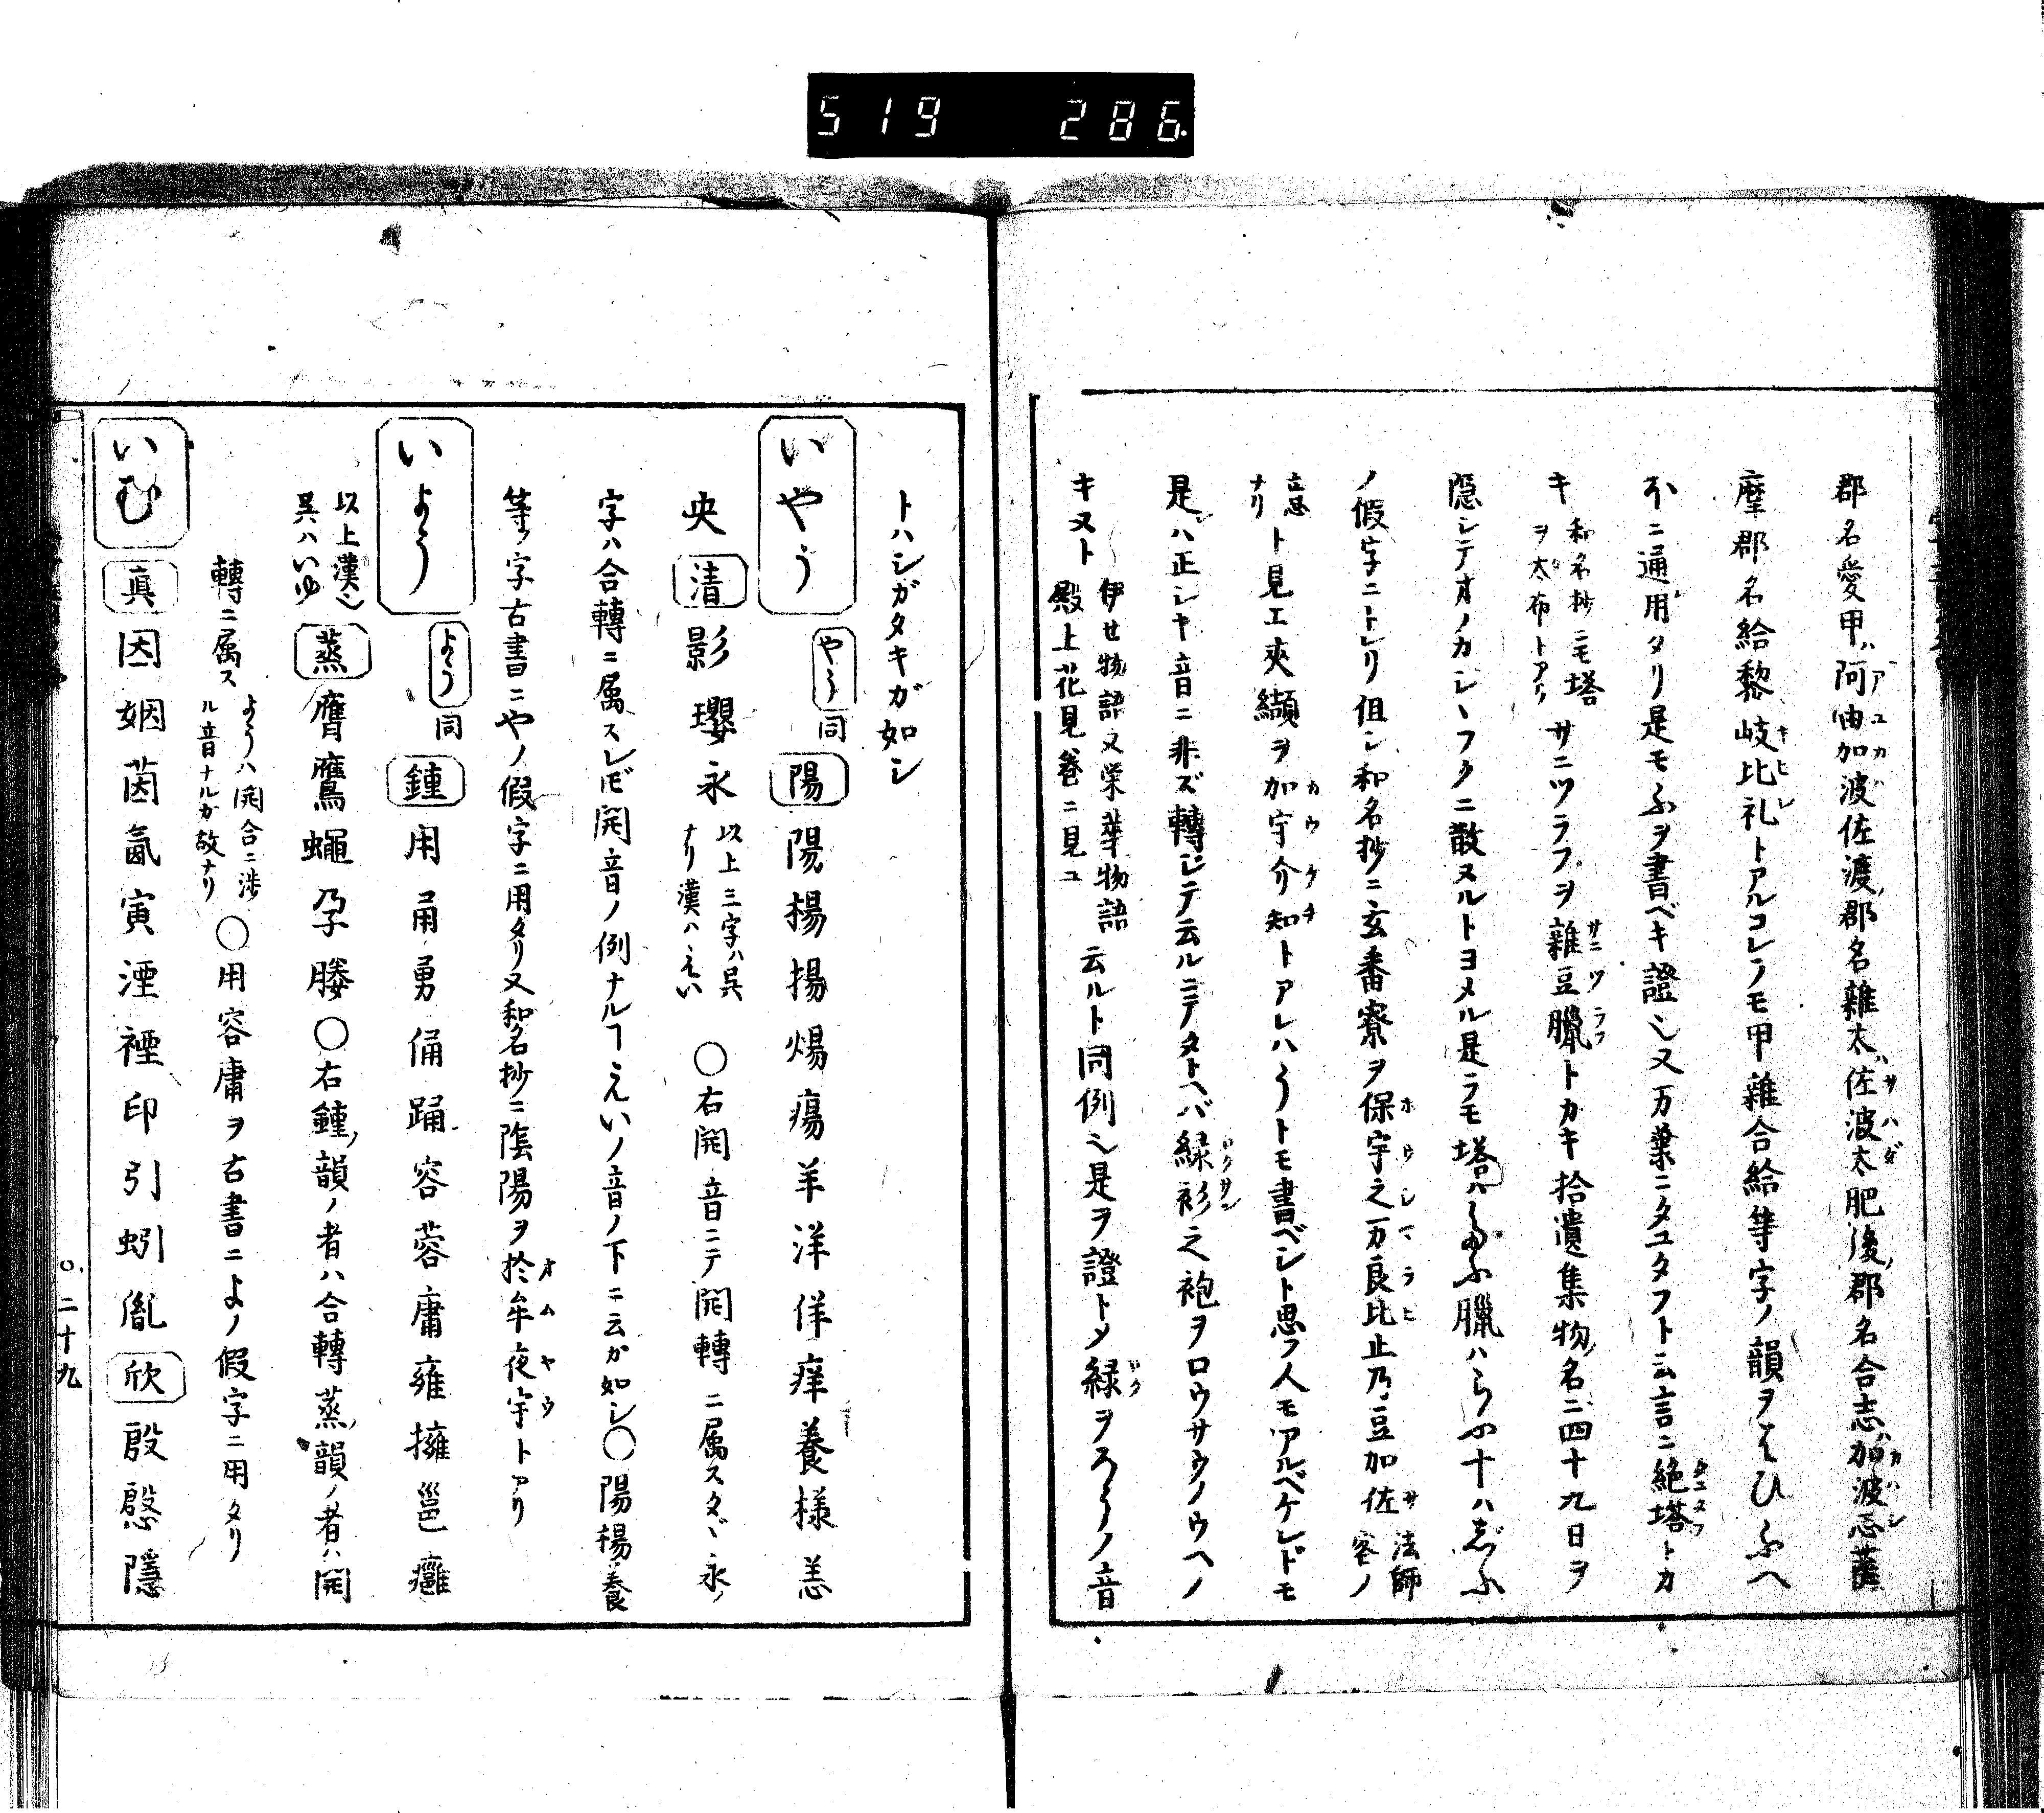 519 286
郡名愛甲ハ阿由加波佐渡ノ郡名雜太ハ佐波太肥後ノ郡名合志ハ加波志薩
摩郡名給黎ハ岐比礼トアルコレラモ甲雜合給等字ノ韻ヲはひふへ
ホニ通用タリ是モふヲ書ベキ證也又万葉ニタユタフト云言ニ絶塔トカ
キ和名抄ニモ塔ヲ太布トアリサニツラフヲ雜豆臘トカキ拾遺集物名ニ四十九日ヲ
隠シテオノカシヽフタニ散ヌルトヨメル是ラモ塔ハたふ臘ハらふ十ハじふ
ノ假字ニトレリ但シ和名抄ニ玄蕃寮ヲ保宇之万良比止乃豆加佐法師客ノ
ナリト見エ夾纈ヲ加宇介知トアレハうトモ書ベシト思フ人モアルベケレドモ
是ハ正シキ音ニ非ズ轉ジテ云ルニテタトヘバ緑衫之袍ヲロウサウノウヘノ
キヌト伊せ物語又栄華物語殿上花見巻ニ見ユ云ルト同例也是ヲ證トメ緑ヲろうノ音
トハシガタキガ如シ
いやう やう同 陽 陽楊揚煬瘍羊洋佯痒養樣恙
央 清 影瓔永以上三字ハ呉ナリ漢ハえい 〇右開音ニテ開轉ニ属スタヾ永ノ
字ハ合轉ニ属スレドモ開音ノ例ナルヿえいノ音ノ下ニ云カ如シ〇陽楊養
等ノ字古書ニやノ假字ニ用タリ又和名抄ニ陰陽ヲ於牟夜宇トアリ
いよう よう同 鍾 用甬勇俑踊容蓉庸雍擁邕癰
以上漢也呉ハいゆ 蒸 膺鷹蠅孕媵〇右鍾ノ韻ノ者ハ合轉蒸ノ韻ノ者ハ開
轉ニ属スようハ開合ニ渉ル音ナルガ故ナリ〇用容庸ヲ古書ニよノ假字ニ用タリ
いむ 眞 因姻茵氤寅湮禋印引蚓胤 欣 殷慇隱
二十九